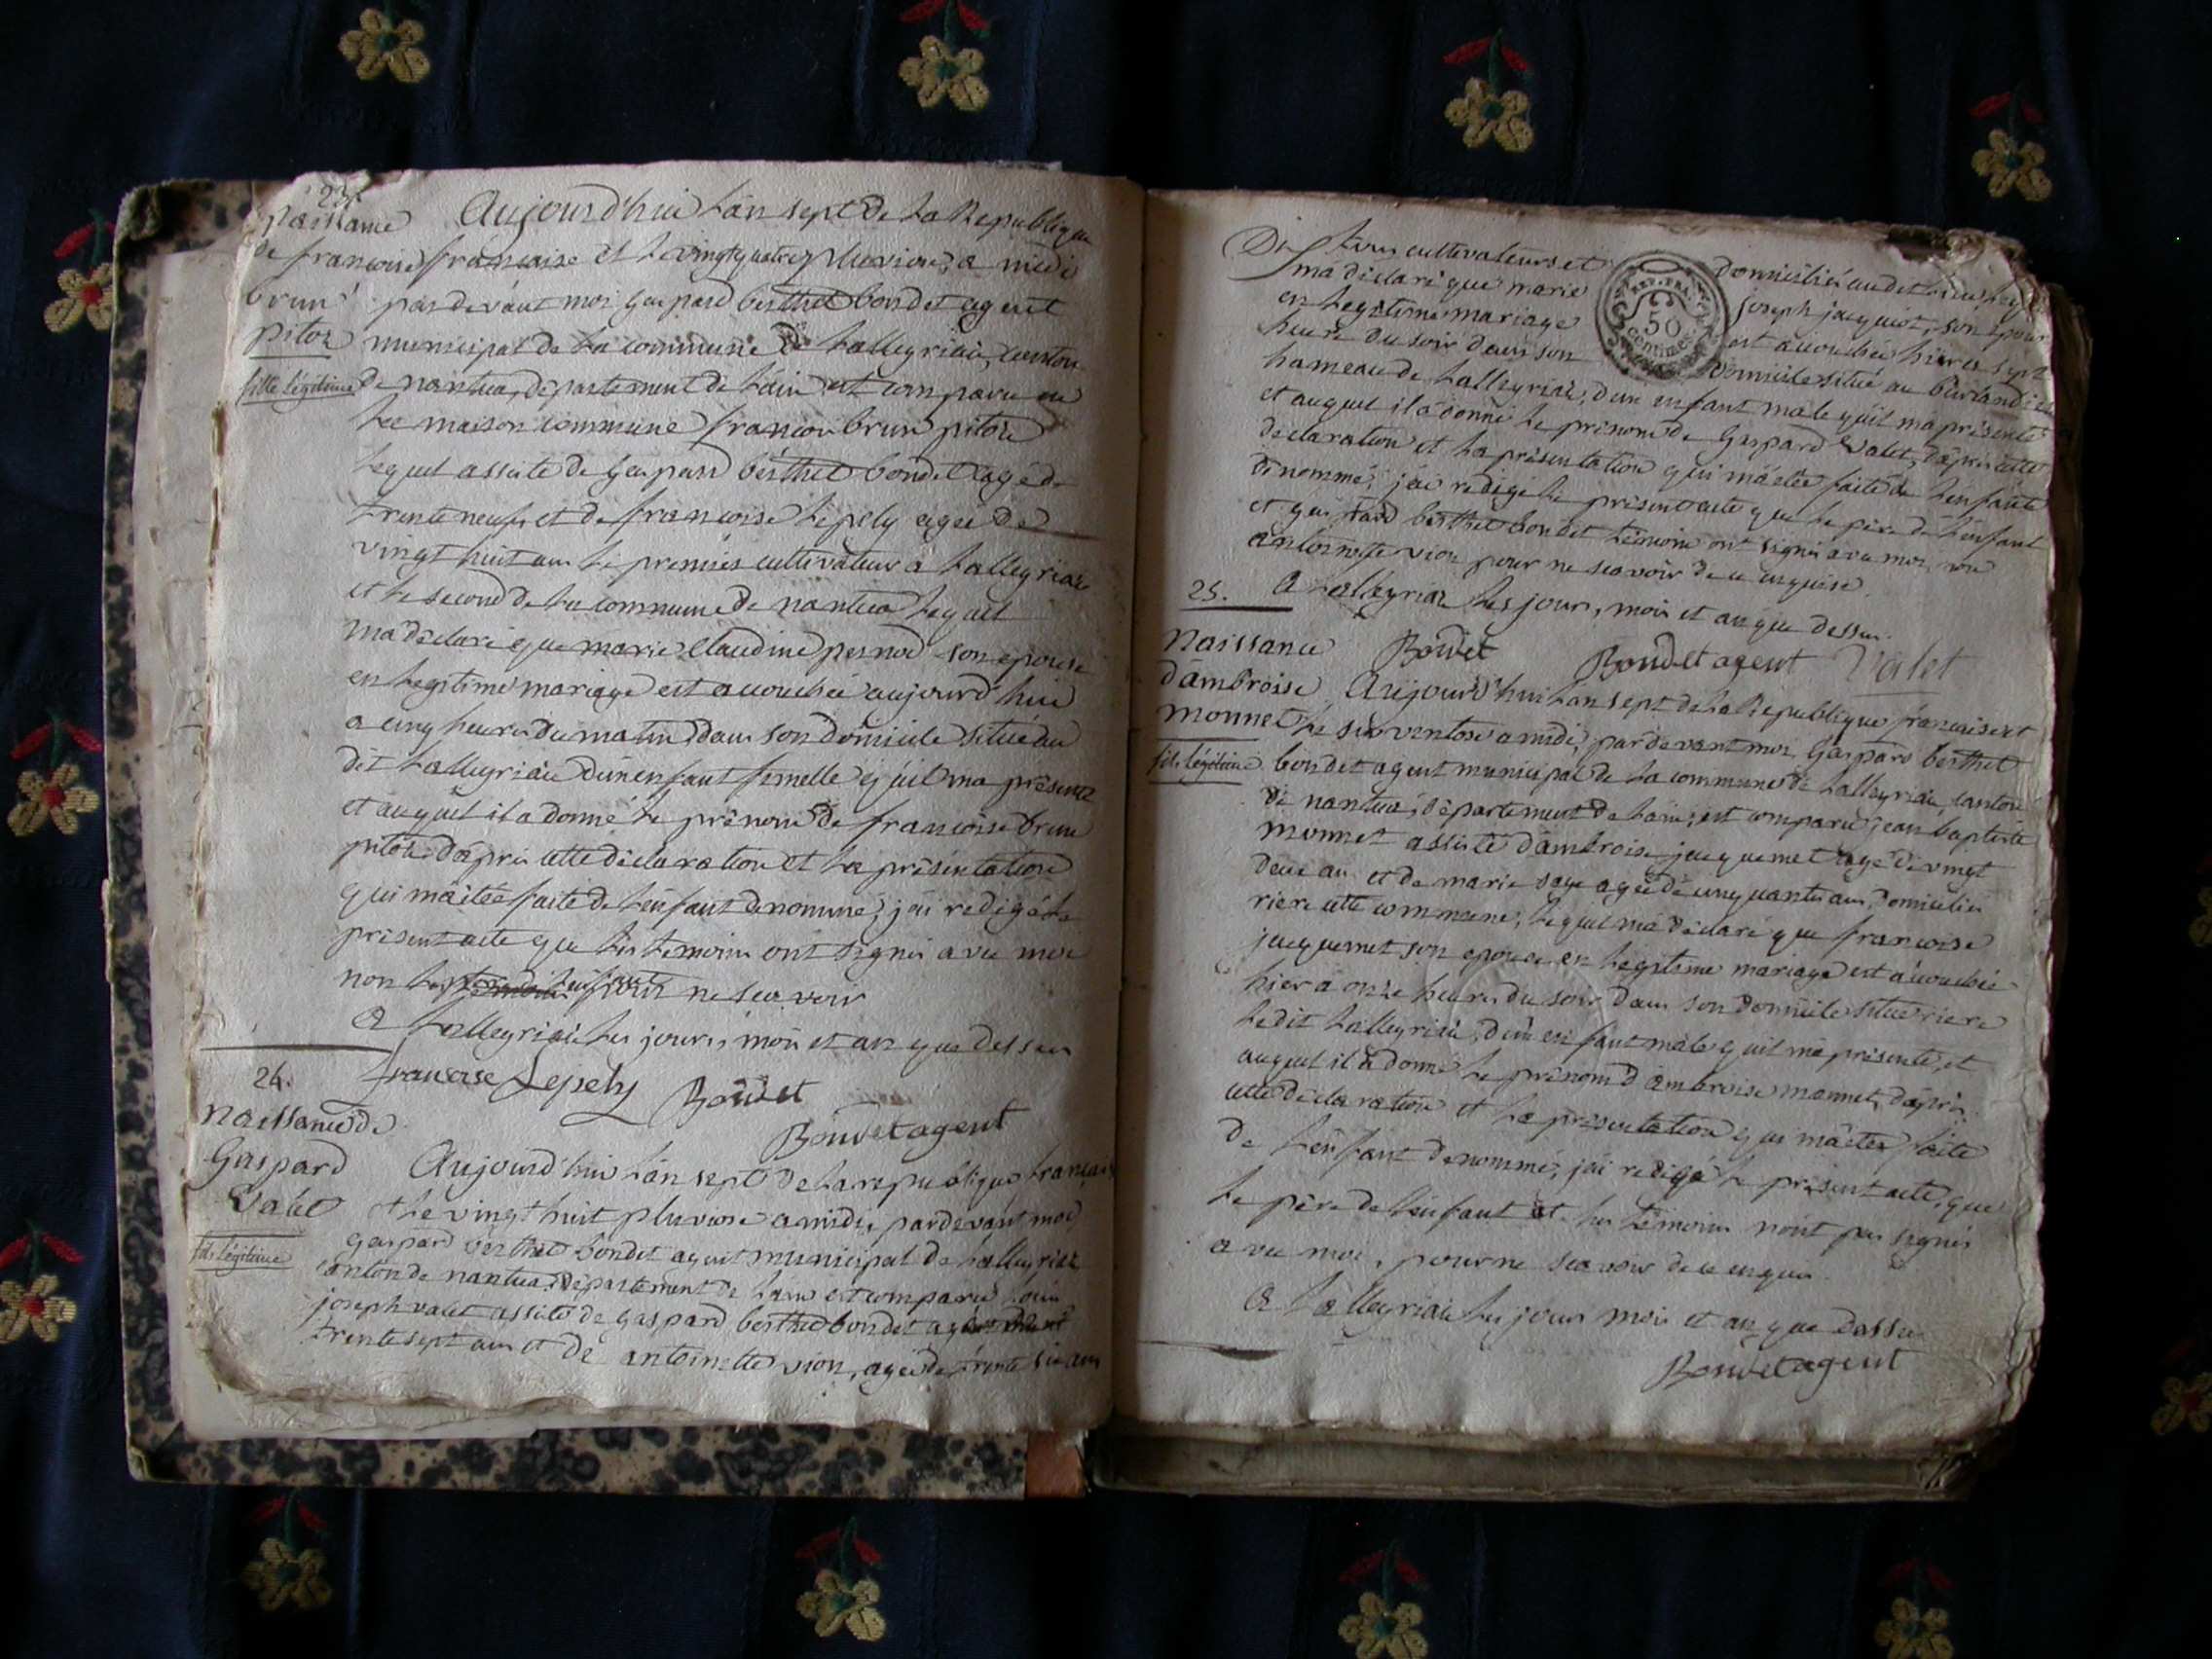 23.
Naissance
de françoise
brun
pitoz
fille légitime
Aujourd'hui L'an sept de La Republique
française et Le vingtquatre pluviose, a midi
pardevant moi gaspard berthet bondet agent
municipal de La commune de Lalleyriat, canton
de nantua, département de L'ain est comparu en
La maison commune françois brun pitoz
Lequel assisté de Gaspard berthet bondet agé de
trente neuf et de françoise Lepely agée de
vingt huit ans Le premier cultivateur a Lalleyriat
et Le second de La commune de nantua Lequel
m'a déclaré que marie Claudine pernod son epouse
en Legitime mariage est accouchée aujourd'hui
a cinq heures du matin, dans son domicile situé au
dit Lalleyriat d'un enfant femelle qu'il ma présenté
et auquel il a donné Le prénom de françoise brun
pitoz, d'après cette déclaration et La présentation
qui m'a été faite de L'enfant denommé, j'ai redigé Le
présent acte que Les témoins ont signé avec moi
non Le père de L'enfant pour ne scavoir
A Lalleyriat Les jours, mois et an que dessus
francoise Lepely Bondet
Bondet agent
24.
Naissance de
Gaspard
Valet
fils légitime
Aujourd'hui L'an sept de La republique français
et Le vingt huit pluviose a midi, pardevant moi
gaspard berthet bondet agent municipal de Lalleyriat
canton de nantua, département de L'ain est comparu Louis
joseph valet assisté de gaspard berthet bondet agé
trente sept ans et de antoinette vion, agée de trente six ans
Les deux cultivateurs et domiciliés audit Lieu Lequel
m'a déclaré que marie joseph jacquiot, son epouse
en Legitime mariage est accouchée hier a sept
heure du soir dans son domicile situé au
hameau de Lalleyriat, d'un enfant male qu'il m'a présenté
et auquel il a donné Le prénom de Gaspard Valet, d'après cette
déclaration et La présentation qui m'a été faite de L'enfant
denommé, j'ai redigé Le présent acte que Le père de L'enfant
et gaspard berthet bondet témoin ont signé avec moi, non
antoinette vion pour ne scavoir de ce enquise.
A Lalleyriat Les jours, mois et an que dessus.
Bondet Bondet agent Valet
REP. FRA.
50
Centimes
25.
Naissance
d'ambroise
monnet
fils légitime
Aujourd'hui L'an sept de La Republique française et
Le six ventose a midi, pardevant moi Gaspard berthet
bondet agent municipal de La commune de Lalleyriat, canton
de nantua, département de L'ain, est comparu jean baptiste
monnet assisté d'ambroise jacquemet agé de vingt
deux ans et de marie sage agée de cinquante ans, domiciliés
riere cette commune, Lequel m'a déclaré que françoise
jacquemet son epouse en Legitime mariage est accouchée
hier a onze heures du soir dans son domicile situé riere
Ledit Lalleyriat, d'un enfant male qu'il m'a présenté, et
auquel il a donné Le prénom d'ambroise monnet, d'après
cette déclaration et La présentation qui m'a été faite
de L'enfant denommé, j'ai redigé Le présent acte, que
Le père de L'enfant et Les témoins n'ont pas signés
avec moi, pour ne scavoir de ce enquis
A Lalleyriat Les jours mois et an que dessus
Bondet agent